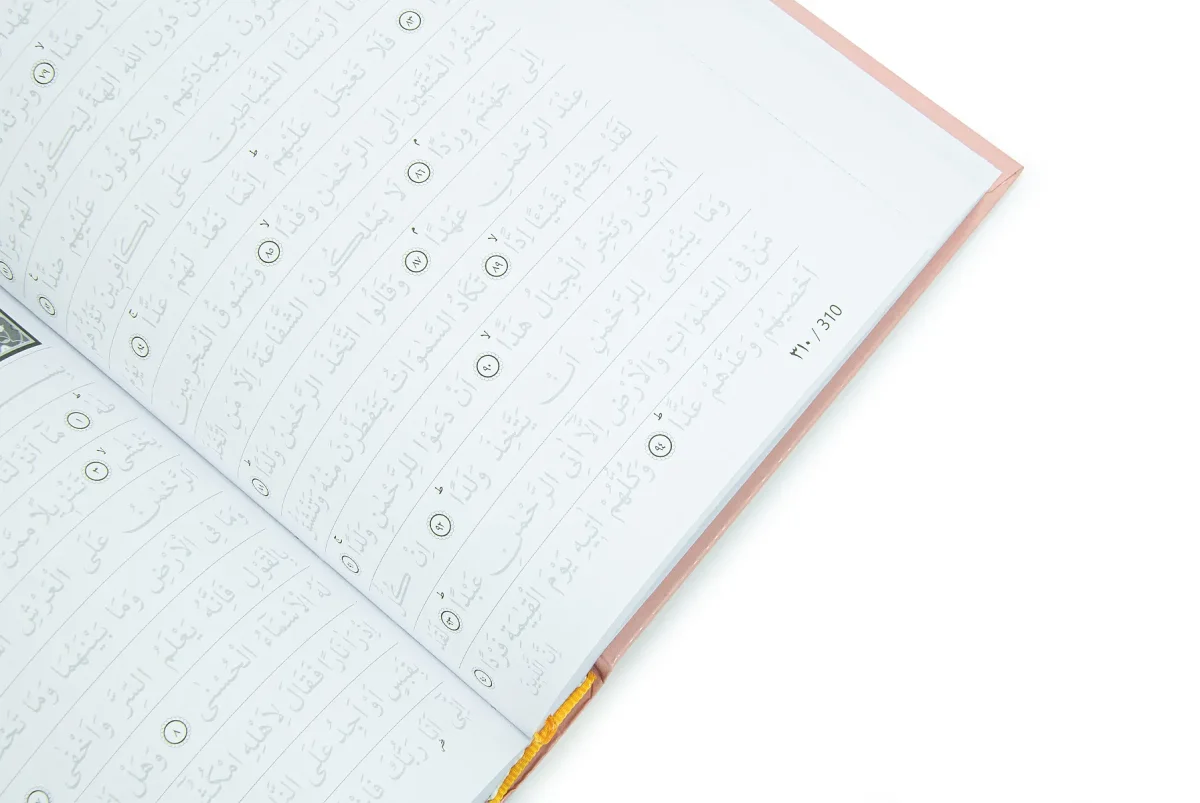 عَهْدًا
مَدًّا ٧٩ وَنَرِثُهُ
دُونِ اللّٰهِ اٰلِهَةً لِيَكُونُوا لَهُمْ عِزًّا ٨١
بِعِبَادَتِهِمْ وَيَكُونُونَ عَلَيْهِمْ ضِدًّا ٨٢
اَرْسَلْنَا الشَّيَاطِينَ عَلَى الْكَافِرِينَ تَؤُزُّهُمْ
٨٣ فَلَا تَعْجَلْ عَلَيْهِمْ اِنَّمَا نَعُدُّ لَهُمْ عَدًّا ٨٤ يَوْمَ
نَحْشُرُ الْمُتَّقِينَ اِلَى الرَّحْمٰنِ وَفْدًا ٨٥ وَنَسُوقُ الْمُجْرِمِينَ
اِلٰى جَهَنَّمَ وِرْدًا ٨٦ لَا يَمْلِكُونَ الشَّفَاعَةَ اِلَّا مَنِ اتَّخَذَ
عِنْدَ الرَّحْمٰنِ عَهْدًا ٨٧ وَقَالُوا اتَّخَذَ الرَّحْمٰنُ وَلَدًا ٨٨
لَقَدْ جِئْتُمْ شَيْـًٔا اِدًّا ٨٩ تَكَادُ السَّمٰوَاتُ يَتَفَطَّرْنَ مِنْهُ وَتَنْشَقُّ
الْاَرْضُ وَتَخِرُّ الْجِبَالُ هَدًّا ٩٠ اَنْ دَعَوْا لِلرَّحْمٰنِ وَلَدًا ٩١
وَمَا يَنْبَغِى لِلرَّحْمٰنِ اَنْ يَتَّخِذَ وَلَدًا ٩٢ اِنْ كُلُّ
مَنْ فِى السَّمٰوَاتِ وَالْاَرْضِ اِلَّٓا اٰتِى الرَّحْمٰنِ عَبْدًا ٩٣ لَقَدْ
اَحْصٰيهُمْ وَعَدَّهُمْ عَدًّا ٩٤ وَكُلُّهُمْ اٰتِيهِ يَوْمَ الْقِيٰمَةِ فَرْدًا ٩٥ اِنَّ الَّذِينَ
٣١٠ / 310
طٰهٰ ١ مَٓا اَنْزَلْنَا
يَخْشٰى ٣ تَنْزِيلًا مِمَّنْ
اَلرَّحْمٰنُ عَلَى الْعَرْشِ
وَمَا فِى الْاَرْضِ وَمَا بَيْنَهُمَا وَمَا تَحْتَ
بِالْقَوْلِ فَاِنَّهُ يَعْلَمُ السِّرَّ وَاَخْفٰى
لَهُ الْاَسْمَٓاءُ الْحُسْنٰى ٨ وَهَلْ
اِذْ رَاٰ نَارًا فَقَالَ لِاَهْلِهِ امْكُثُٓوا
بِقَبَسٍ اَوْ اَجِدُ عَلَى النَّارِ
اِنِّٓى اَنَا رَبُّكَ فَاخْلَعْ